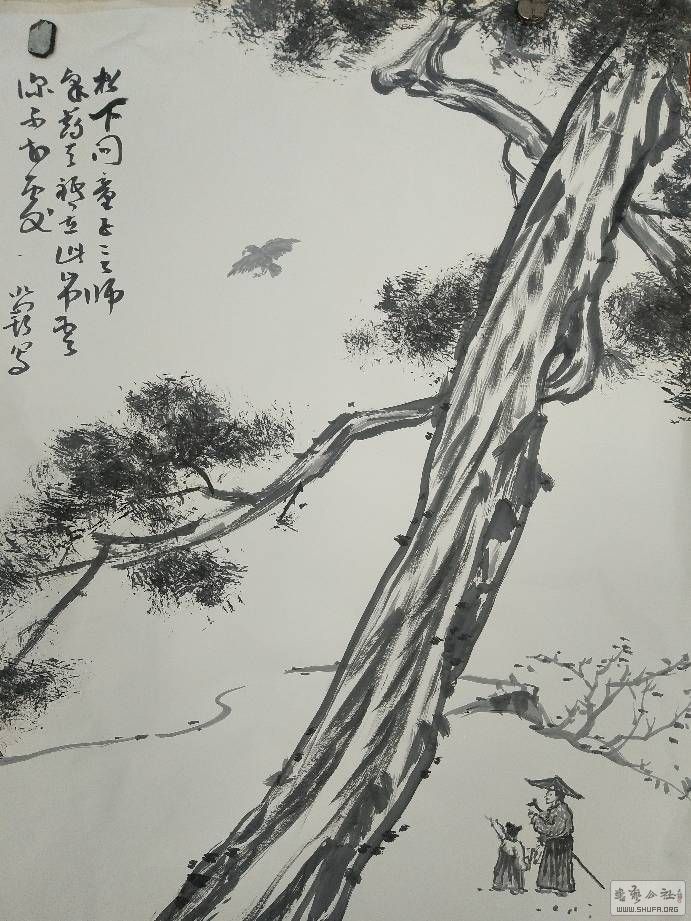 松下问童子言师
采药去祇在此山中云
深不知处
写
書藝公社
WWW.SHUFA.ORG